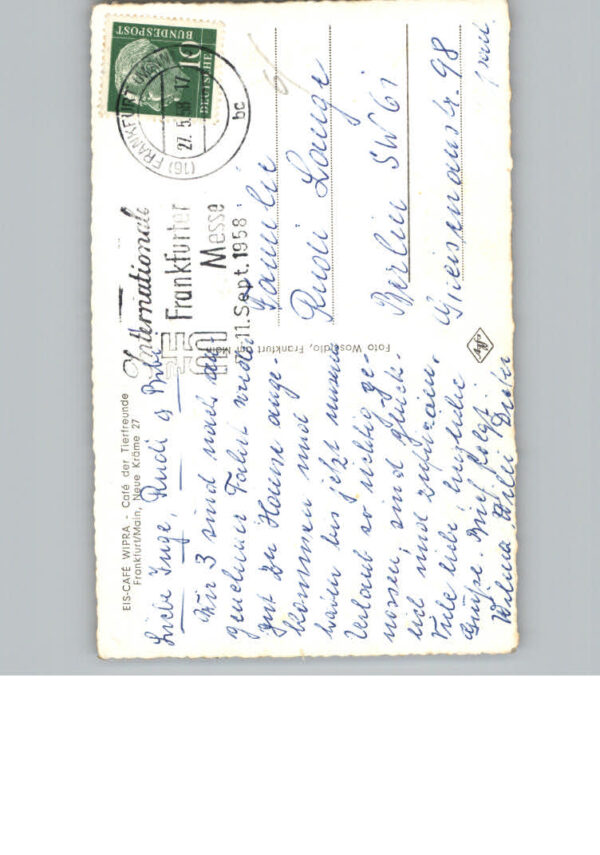 EIS-CAFÉ WIPRA - Café der Tierfreunde
Frankfurt/Main, Neue Kräme 27
Liebe Inge, Rudi &
Wir 3 sind nach
genehmer Fahrt wieder
gut zu Hause ange-
kommen und
haben bis jetzt unseren
Urlaub so richtig ge-
nossen, sind glück-
lich und zufrieden.
Viele liebe herzliche
Grüße. Brief folgt.
Willi Dieter
Foto Wosidlo, Frankfurt/Main
Agfa
DEUTSCHE
BUNDESPOST
10
(16) FRANKFURT (MAIN)
27.5.58-17
bc
Internationale
Frankfurter
Messe
11. Sept. 1958
Familie
Rudi Lange
Berlin SW 61
Gneisenaustr. 98